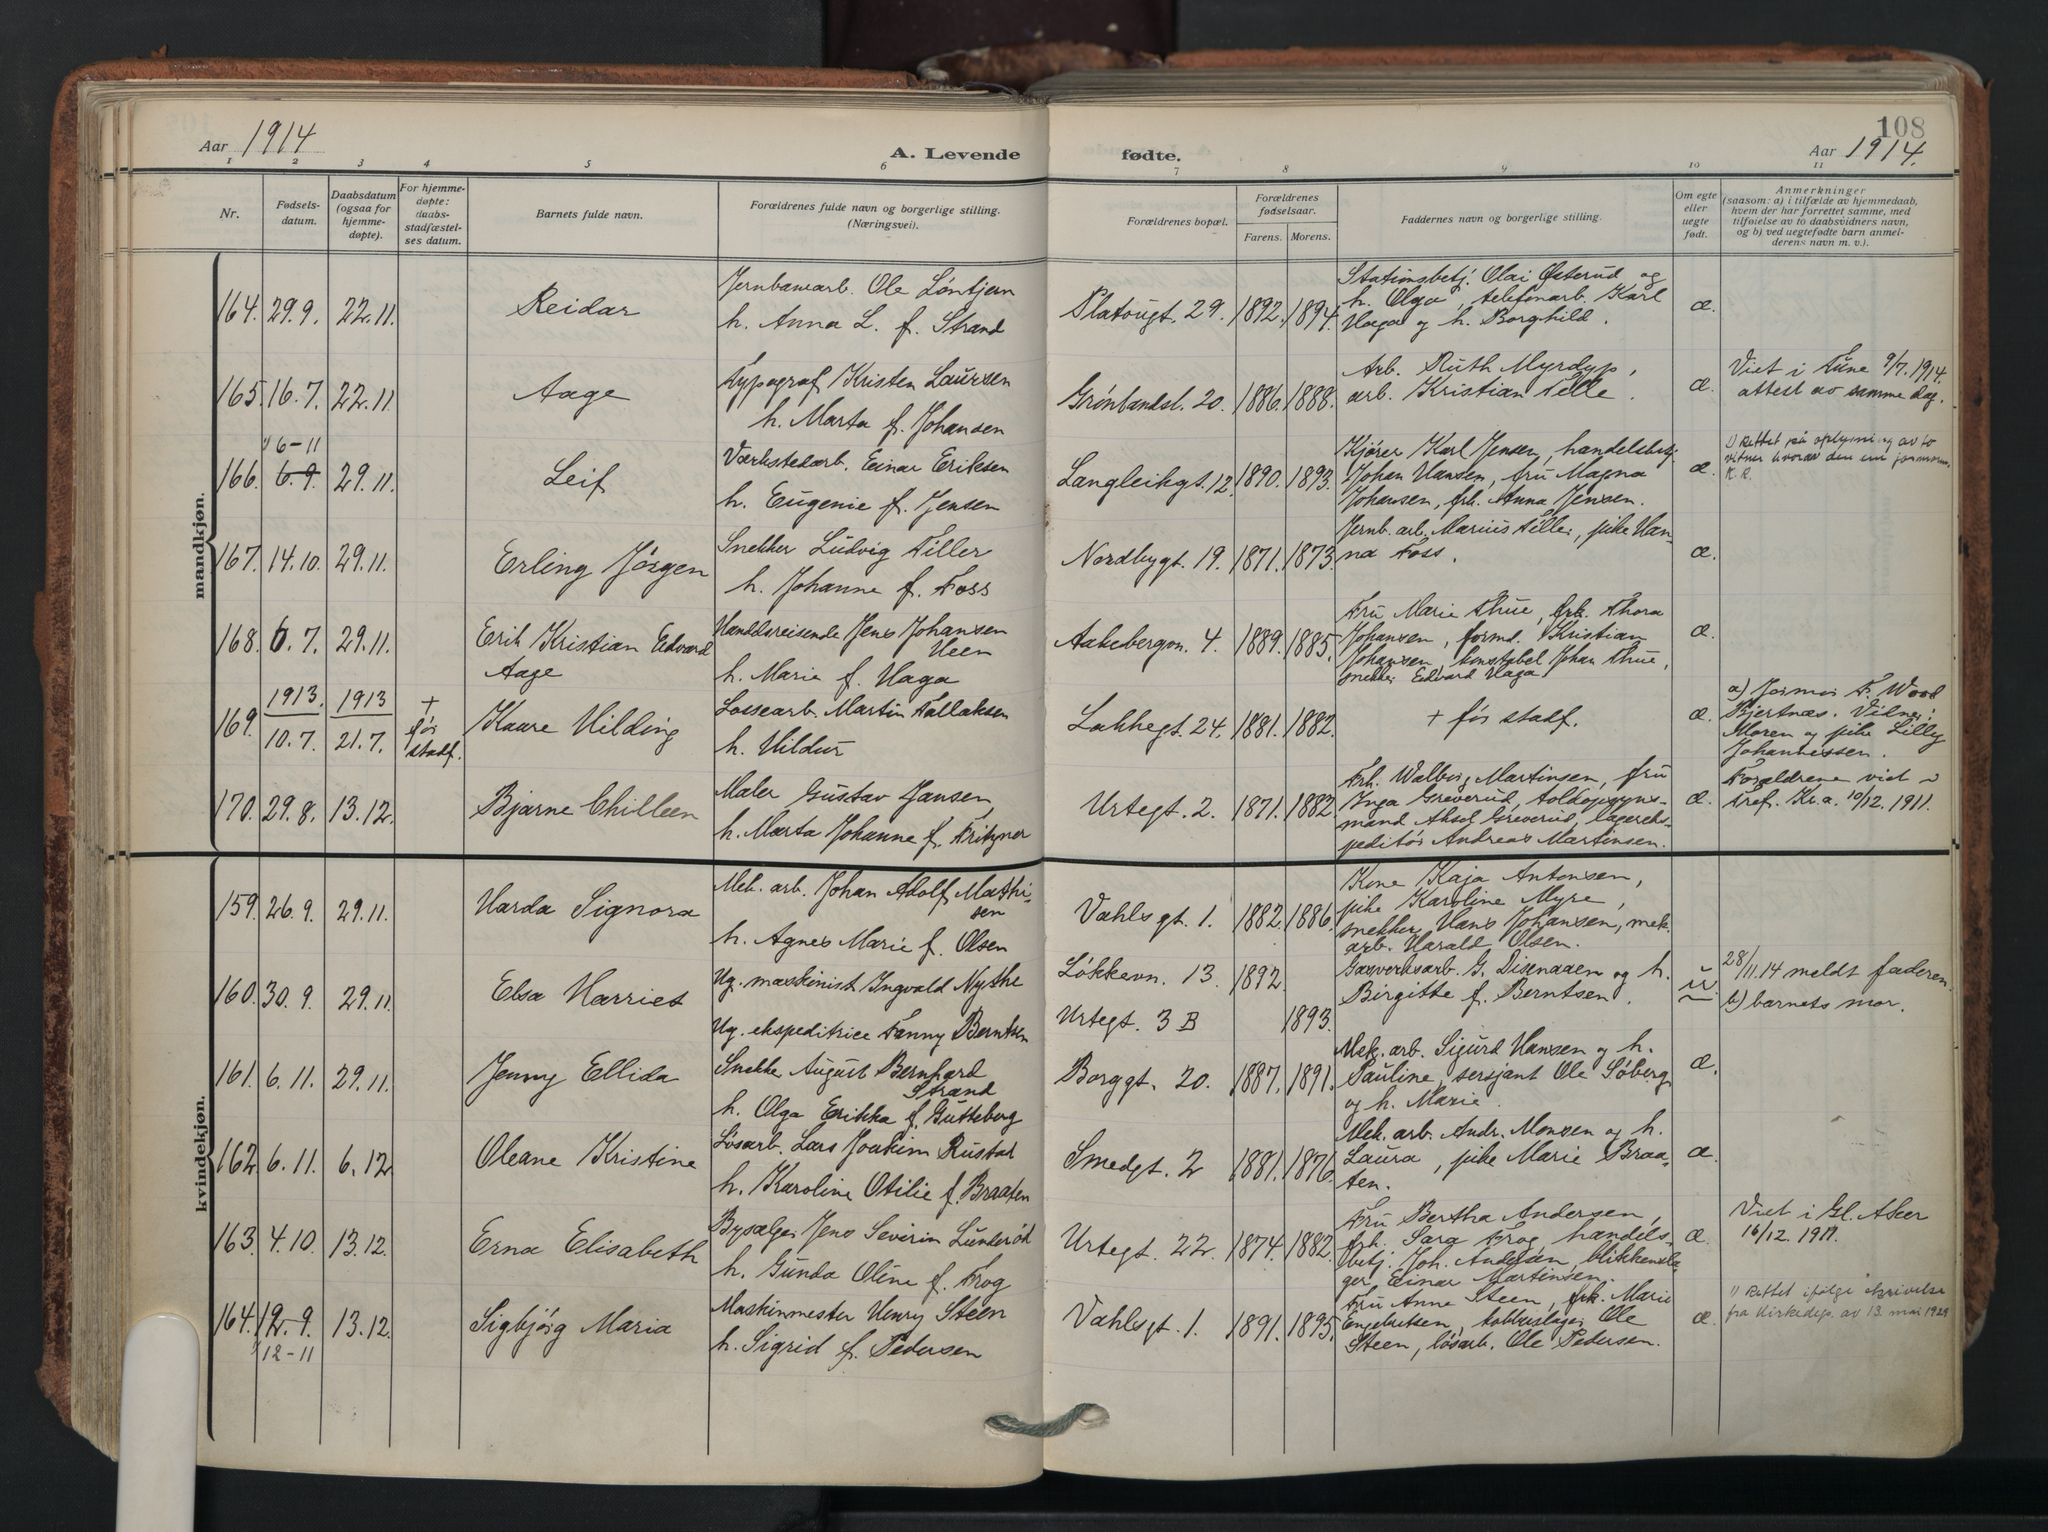 108
Aar 1914
A. Levende fødte.
Aar 1914.
1 2 3 4 5 6 7 8 9 10 11
Nr.
Fødsels-
datum.
Daabsdatum
(ogsaa for
hjemme-
døpte).
For hjemme-
døpte:
daabs-
stadfæstel-
ses datum.
Barnets fulde navn.
Forældrenes fulde navn og borgerlige stilling.
(Næringsvei).
Forældrenes bopæl.
Forældrenes
fødselsaar.
Farens. Morens.
Faddernes navn og borgerlige stilling.
Om egte
eller
uegte
født.
Anmerkninger
(saasom: a) i tilfælde av hjemmedaab,
hvem der har forrettet samme, med
tilføielse av to daabsvidners navn,
og b) ved uegtefødte barn anmel-
derens navn m. v.).
mandkjøn.
164. 29.9. 22.11. Reidar
Jernbanearb. Ole Løntjern
h. Anna L. f. Strand
Platougt. 29. 1892. 1894.
Stationsbetj. Olai Østerud og
h. Olga, telefonarb. Karl
Haga og h. Borghild.
æ.
165. 16.7. 22.11. Aage
Typograf Kristen Laursen
h. Marta f. Johansen
Grønlandsl. 20. 1886. 1888.
Arb. Ruth Myrdyp,
arb. Kristian Telle.
æ.
Viet i Tune 9/7. 1914.
attest av samme dag.
1) 6-11
166. 6.9. 29.11. Leif
Værkstedarb. Einar Eriksen
h. Eugenie f. Jensen
Langleikgt. 12. 1890. 1893.
Kjører Karl Jensen, handelsbetj.
Johan Hansen, fru Magna
Johansen, frk. Anna Jensen.
æ.
1) Rettet på oplysning av to
vitner hvorav den ene jormoren.
K.R.
167. 14.10. 29.11. Erling Jørgen
Snekker Ludvig Tiller
h. Johanne f. Foss
Nordbygt. 19. 1871. 1873.
Jernb. arb. Marius Tiller, pike Han-
na Foss.
æ.
168. 6.7. 29.11. Erik Kristian Edvard
Aage
Handelsreisende Jens Johansen
Ueen
h. Marie f. Haga
Aakebergvn. 4. 1889. 1885.
Fru Marie Thue, frk. Thora
Johansen, formd. Kristian
Johansen, konstabel Johan Thue,
snekker Edvard Haga.
æ.
169. 1913. 10.7. 1913 21.7. + før stadf. Kaare Hilding
Lossearb. Martin Tallaksen
h. Hildur
Lakkegt. 24. 1881. 1882.
+ før stadf.
æ.
a) Jormor F. Wood
Bjertnæs. Vidner:
Moren og pike Lilly
Johannessen.
170. 29.8. 13.12. Bjarne Chilleen
Maler Gustav Jansen,
h. Marta Johanne f. Fritzner
Urtegt. 2. 1871. 1882.
Frk. Walborg Martinsen, fru
Inga Greverud, toldopsyns-
mand Aksel Greverud, lagereks-
peditør Andreas Martinsen.
æ.
Forældrene viet i
Tref. Kr.a. 10/12. 1911.
kvindekjøn.
159. 26.9. 29.11. Harda Signora
Mek. arb. Johan Adolf Mathi-
sen
h. Agnes Marie f. Olsen
Vahlsgt. 1. 1882. 1886.
Kone Kaja Antonsen,
pike Karoline Myre,
snekker Hans Johansen, mek.
arb. Harald Olsen.
160. 30.9. 29.11 Elsa Harriet
Ug. maskinist Ingvald Nythe
Ug. ekspeditrice Fanny Berntsen
Løkkevn. 13. 1892.
Urtegt. 3 B 1893.
Gasverksarb. G. Disenaaen og h.
Birgitte f. Berntsen.
u.
28/11.14 meldt faderen.
b) barnets mor.
161. 6.11. 29.11. Jenny Ellida
Snekker August Bernhard
Strand
h. Olga Erikka f. Gutteberg
Borggt. 20. 1887. 1891.
Mek. arb. Sigurd Hansen og h.
Pauline, sersjant Ole Søberg
og h. Marie.
æ.
162. 6.11. 6.12 Oleane Kristine
Løsarb. Lars Joakim Rustad
h. Karoline Otilie f. Braaten
Smedgt. 2 1881. 1876.
Mek. arb. Andr. Monsen og h.
Laura, pike Marie Braa-
ten.
æ.
163. 4.10. 13.12. Erna Elisabeth
Bysælger Jens Severin Lunderød
h. Gunda Oline f. Frog
Urtegt. 22. 1874. 1882.
Fru Bertha Andersen,
frk. Sara Frog, handels-
betj. Joh. Andersen, blikkensla-
ger Einar Martinsen.
æ.
Viet i Gl. Aker
16/12. 1911.
164. 12.9. 13.12. Sigbjørg Maria
1) 12-11
Maskinmester Henry Steen
h. Sigrid f. Pedersen
Vahlsgt. 1. 1891. 1895.
Fru Anne Steen, frk. Marie
Engebretsen, kobberslager Ole
Steen, løsarb. Ole Pedersen.
æ.
1) Rettet ifølge skrivelse
fra Kirkedep. av 13. mai 1929